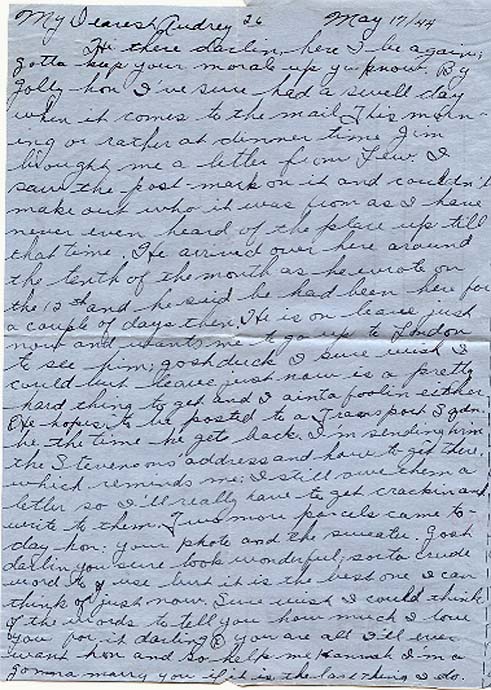 My Dearest Audrey 26 May 17/44
Hi there darlin, here I be again;
gotta keep your morale up yu know. By
golly hon I've sure had a swell day
when it comes to the mail. This morn-
ing or rather at dinner time Jim
brought me a letter from Lew. I
saw the post-mark on it and couldn't
make out who it was from as I have
never even heard of the place up till
that time. He arrived over here around
the tenth of the month as he wrote on
the 12th and he said he had been here for
a couple of days then. He is on leave just
now and wants me to go up to London
to see him; gosh duck I sure wish I
could but leave just now is a pretty
hard thing to get and I ain't a foolin either.
He hopes to be posted to a Transport Sqdn.
by the time he gets back. I'm sending him
the Stevensons' address and how to get there.
which reminds me: I still owe them a
letter so I'll really have to get crackin and
write to them. Two more parcels came to-
day hon: your photo and the sweater. Gosh
darlin you sure look wonderful; sorta crude
word to use but it is the best one I can
think of just now. Sure wish I could think
of the words to tell you how much I love
you for it darling you are all I'll ever
want hon and so help me Hannah I'm a
gonna marry you if it is the last thing I do.